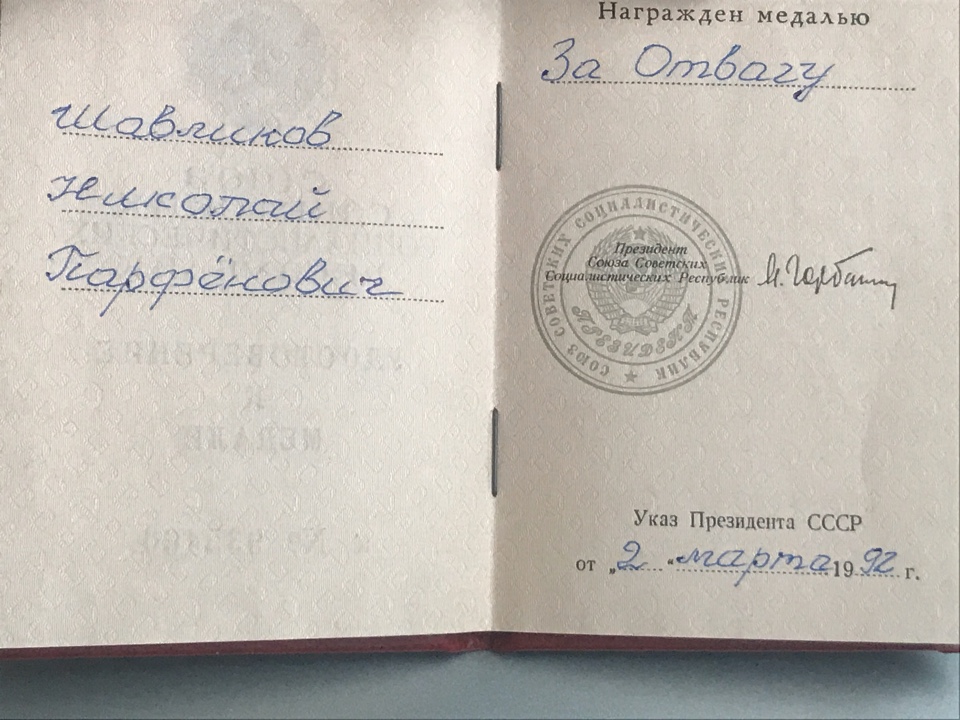 Шавликов
Николай
Парфёнович
Награждён медалью
За Отвагу
СОЮЗ СОВЕТСКИХ СОЦИАЛИСТИЧЕСКИХ РЕСПУБЛИК
Президент
Союза Советских
Социалистических Республик
ПРЕЗИДЕНТ
М. Горбачёв
Указ Президента СССР
от „2“ марта 1992 г.